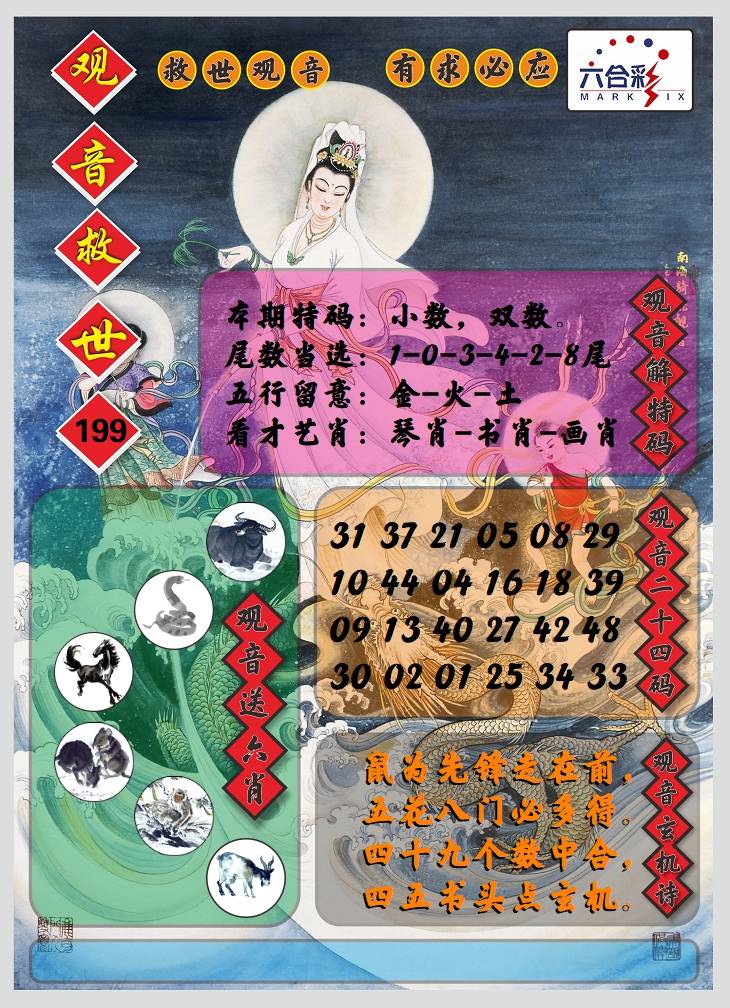 救世观音 有求必应
六合彩
MARK SIX
观音救世
199
南海
观音解特码
本期特码：小数，双数。
尾数当选：1-0-3-4-2-8尾
五行留意：金-火-土
看才艺肖：琴肖-书肖-画肖
观音送六肖
观音二十四码
31 37 21 05 08 29
10 44 04 16 18 39
09 13 40 27 42 48
30 02 01 25 34 33
观音玄机诗
鼠为先锋走在前，
五花八门必多得。
四十九个数中合，
四五书头点玄机。